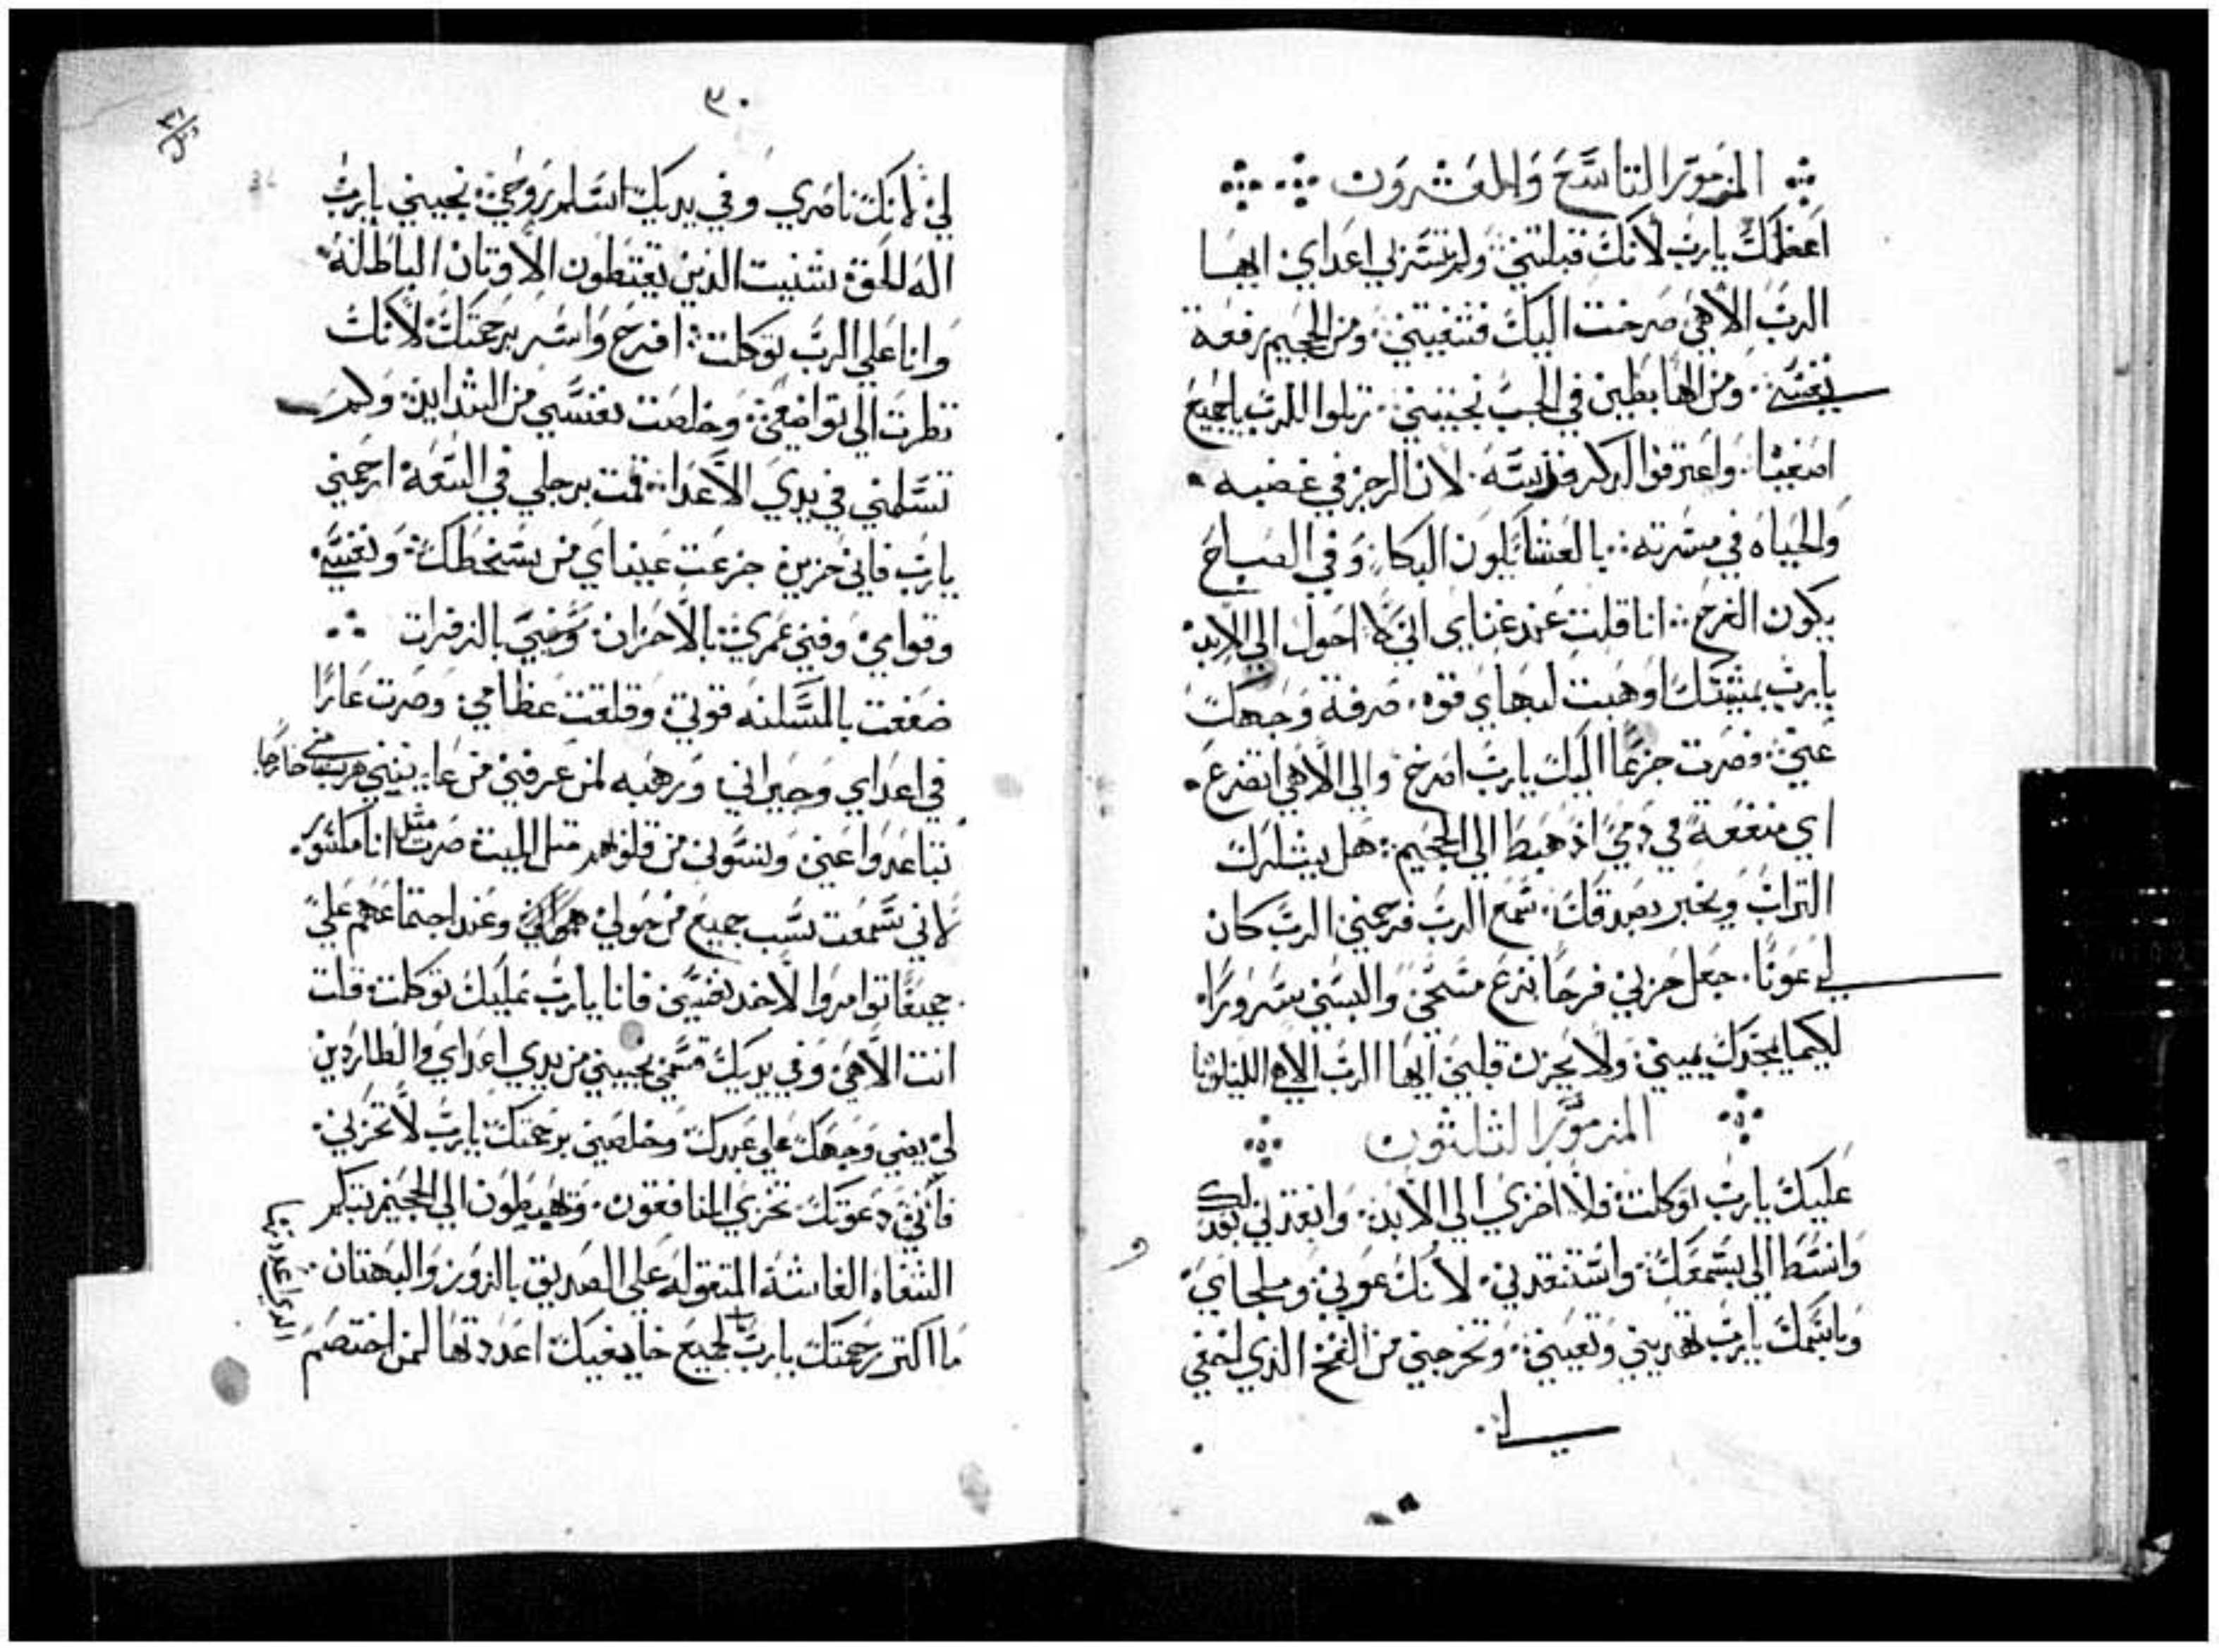 المزمور التاسع والعشرون
اعظمك يارب لانك قبلتني ولم تشمت بي اعداي ايها
الرب الاهي صرخت اليك فشفيتني ومن الجحيم رفعة
نفسي ومن الهابطين في الجب نجيتني رتلوا للرب ياجميع
اصفيا واعترفوا لدكر قدسه لان الرجز في غضبه
والحياه في مسرته بالعشا يكون البكا وفي الصباح
يكون الفرح انا قلت عند غناي اني لا احول الي الابد
يارب بمشيتك اوهبت لبهاي قوه صرفة وجهك
عني فصرت جزعا اليك يارب اصرخ والي الاهي اتضرع
اي منفعة في دمي اذ هبط الي الجحيم هل يشكرك
التراب ويخبر بصدقك سمع الرب فرحمني الرب كان
لي عونا جعل حزني فرحا نزع مسحي والبسني سرورا
لكيما يمجدك يميني ولا يحزن قلبي ايها الرب الاهي
المزمور الثلثون
عليك يارب توكلت فلا اخزي الي الابد وانقدني بعدلك
وانسط الي بسمعك واستنقدني لانك عوني وملجاي
وباسمك يارب تهديني وتعينني وتخرجني من الفخ الذي اخفي
٣٠
لي لانك ناصري وفي يديك اسلم روحي نجيني يارب
اله الحق شنيت الذين يحتفظون الاوتان الباطله
وانا علي الرب توكلت افرح واسر برحمتك لانك
نظرت الي تواضعي وخلصت نفسي من الشدايد ولم
تسلمني في يدي الاعدا قمت برجلي في السعة ارحمني
يارب فاني حزين جزعت عيناي من سخطك ونفسي
وقوامي وفني عمري بالاحزان وسني بالزفرات
ضعفت بالمسكنه قوتي وقلقت عظامي وصرت عارا
في اعداي وجيراني ورهبه لمن عرفني من عاينني هرب مني خارجا
تباعدوا عني ونسوني من قلوبهم متل الميت صرت متل انا مكسور
لاني سمعت سب جميع من حولي وعند اجتماعهم علي
جميعا توامروا لاخد نفسي فانا يارب عليك توكلت قلت
انت الاهي وفي يديك قسمي نجيني من يدي اعداي والطاردين
لي يضي وجهك علي عبدك وخلصني برحمتك يارب لا تخزني
فاني دعوتك تخزي المنافقون ويهبطون الي الجحيم تبكم
الشفاه الغاشة المتقوله علي الصديق بالزور والبهتان
ما اكتر رحمتك يارب لجميع خايفيك اعددتها لمن اختصم